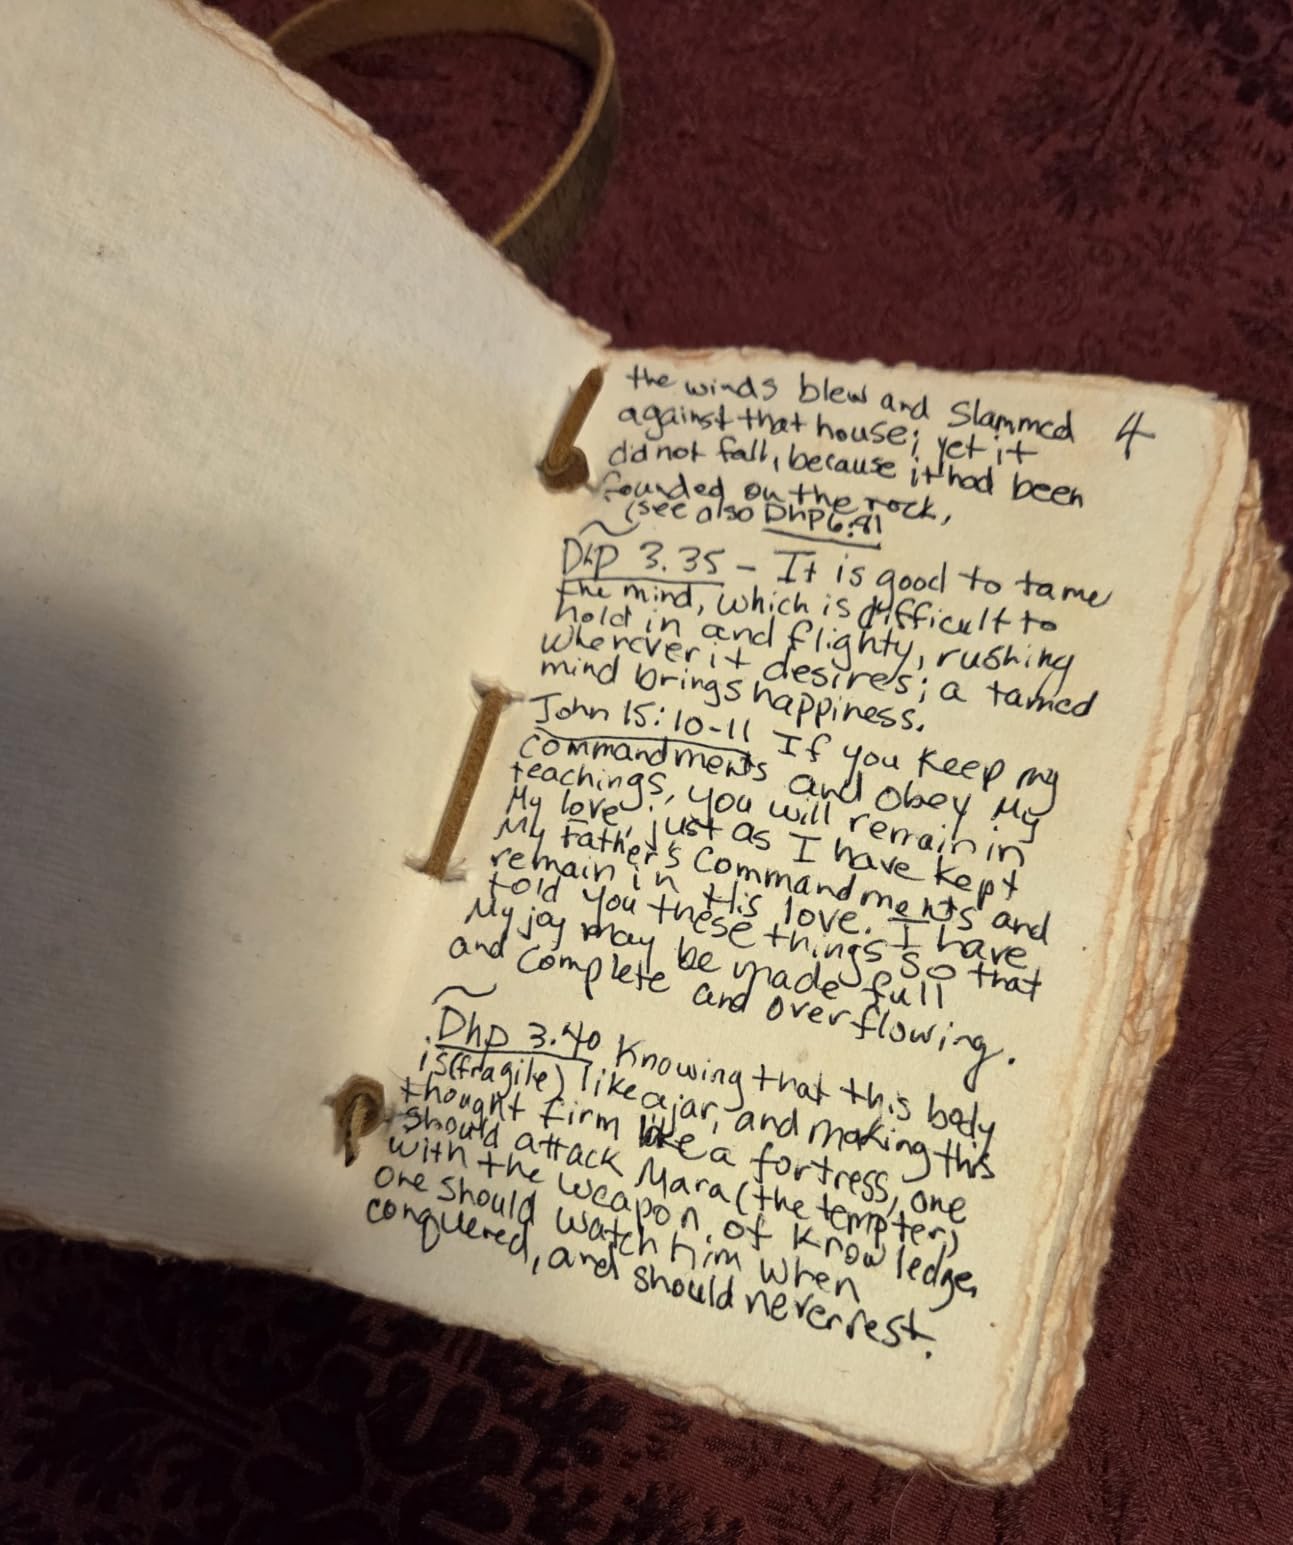 the winds blew and slammed 4
against that house; yet it
did not fall, because it had been
founded on the rock,
(see also Dhp 6.81
Dhp 3.35 - It is good to tame
the mind, which is difficult to
hold in and flighty, rushing
wherever it desires; a tamed
mind brings happiness.
John 15:10-11 If you keep my
commandments and obey My
teachings, you will remain in
My love, just as I have kept
My Father's commandments and
remain in His love. I have
told you these things so that
My joy may be made full
and complete and overflowing.
Dhp 3.40 Knowing that this body
is (fragile) like a jar, and making this
thought firm like a fortress, one
should attack Mara (the tempter)
with the weapon of knowledge,
one should watch him when
conquered, and should never rest.